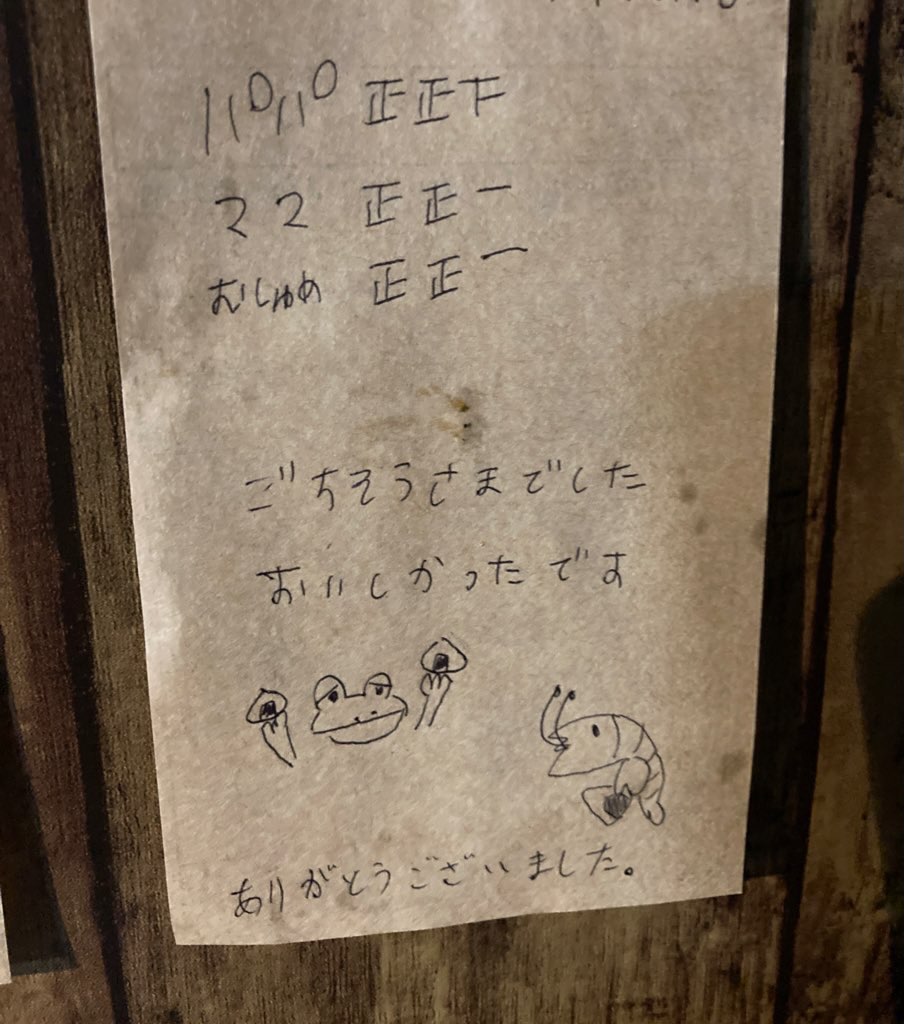 パパ 正正下
ママ 正正一
むしゅめ 正正一
ごちそうさまでした
おいしかったです
ありがとうございました。